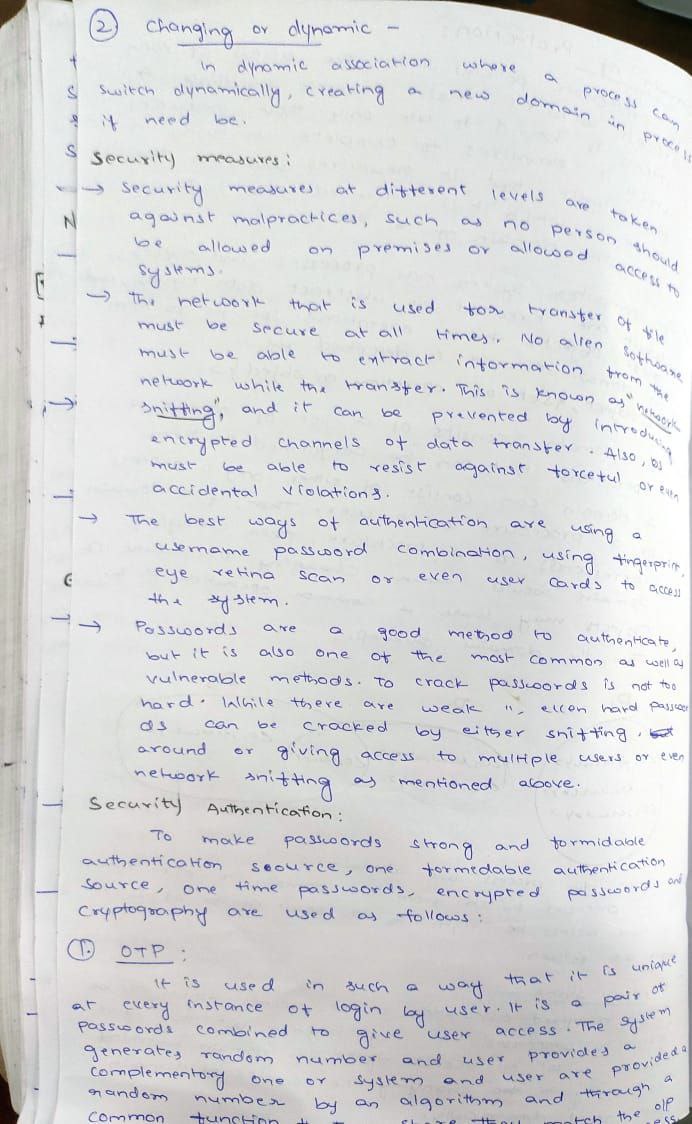 ② Changing or dynamic -
In dynamic association where a process can
switch dynamically, creating a new domain in process
if need be.
Security measures:
→ Security measures at different levels are taken
against malpractices, such as no person should
be allowed on premises or allowed access to
systems.
→ The network that is used for transfer of file
must be secure at all times. No alien software
must be able to extract information from the
network while the transfer. This is known as "network
sniffing", and it can be prevented by introducing
encrypted channels of data transfer. Also, OS
must be able to resist against forceful or even
accidental violations.
→ The best ways of authentication are using a
username password combination, using fingerprint,
eye retina scan or even user cards to access
the system.
→ Passwords are a good method to authenticate,
but it is also one of the most common as well as
vulnerable methods. To crack passwords is not too
hard. While there are weak ", even hard passwor
ds can be cracked by either sniffing,
around or giving access to multiple users or even
network sniffing as mentioned above.
Security Authentication:
To make passwords strong and formidable
authentication source, one formedable authentication
source, one time passwords, encrypted passwords and
Cryptography are used as follows:
①. OTP:
It is used in such a way that it is unique
at every instance of login by user. It is a pair of
passwords combined to give user access. The system
generates random number and user provides a
complementory one or system and user are provided a
random number by an algorithm and through a
common function the o/p